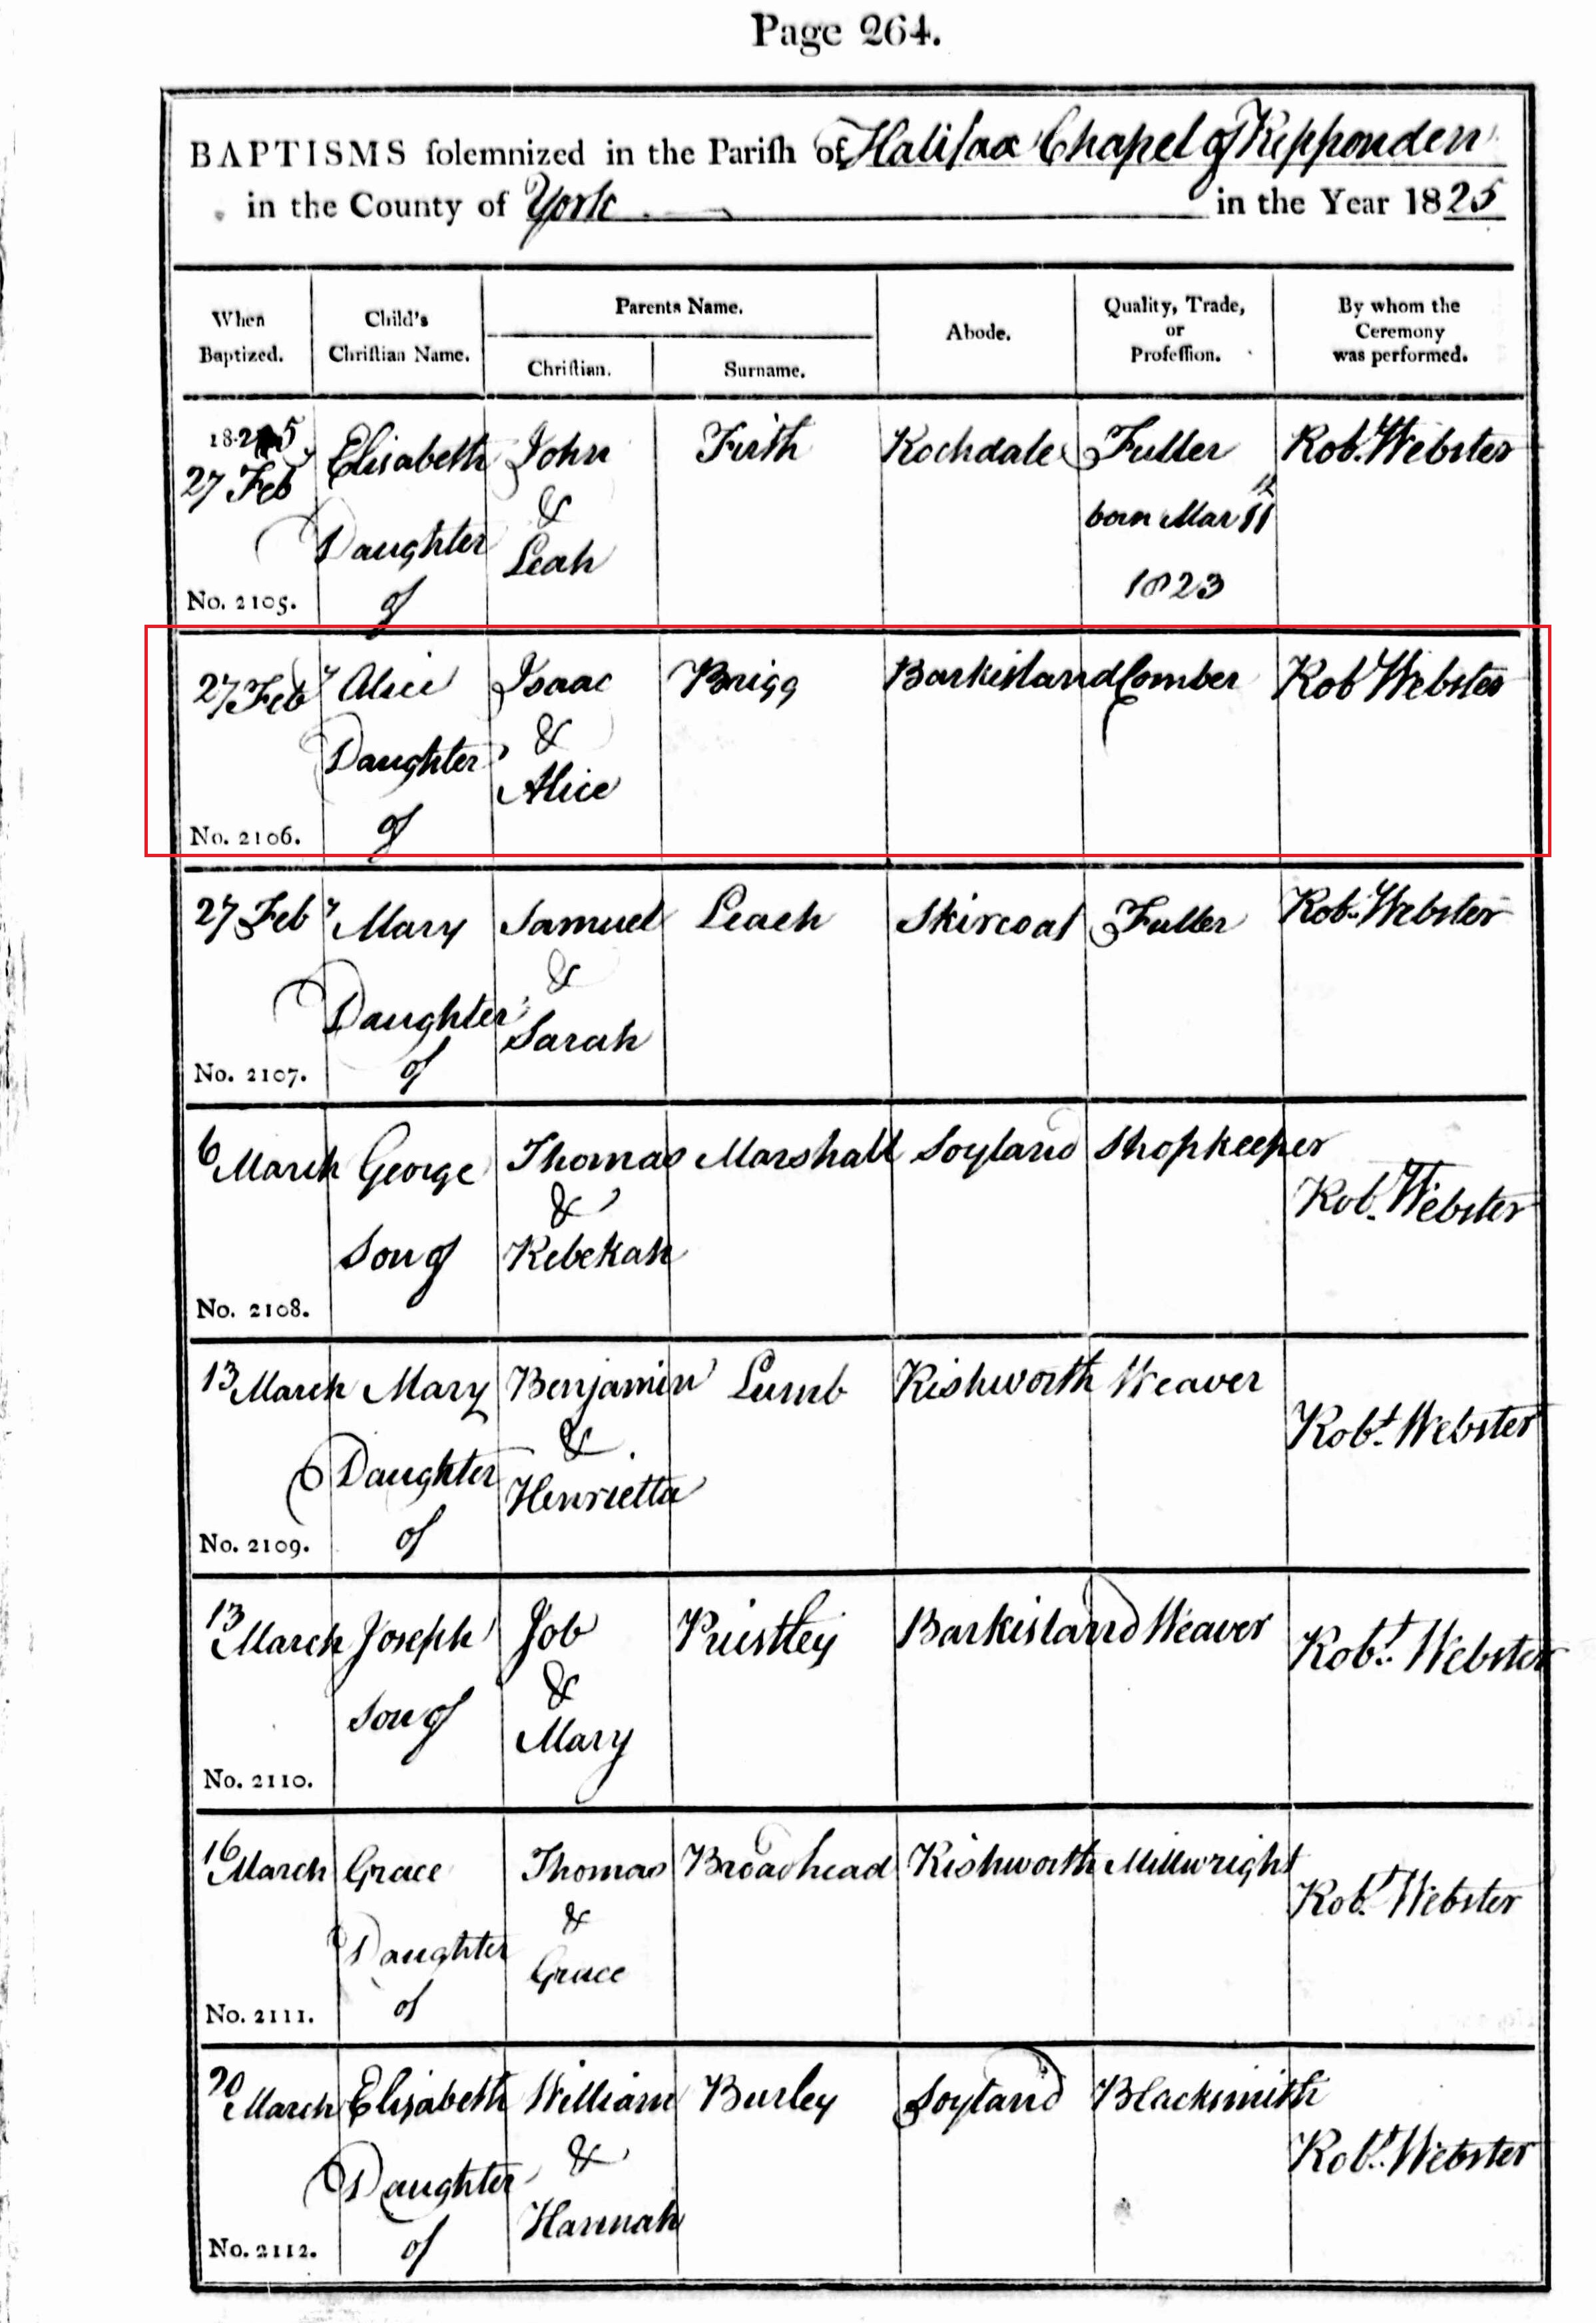 Page 264.
BAPTISMS solemnized in the Parish of Halifax Chapel of Ripponden
in the County of York in the Year 1825
When Baptized. Child's Christian Name. Parents Name. Christian. Surname. Abode. Quality, Trade, or Profession. By whom the Ceremony was performed.
1825 27 Feby Elisabeth Daughter of John & Leah Firth Rochdale Fuller born Mar 11th 1823 Rob. Webster
No. 2105.
27 Feby Alice Daughter of Isaac & Alice Brigg Barkisland Comber Rob Webster
No. 2106.
27 Feby Mary Daughter of Samuel & Sarah Leach Skircoat Fuller Rob. Webster
No. 2107.
6 March George Son of Thomas & Rebekah Marshall Soyland Shopkeeper Rob. Webster
No. 2108.
13 March Mary Daughter of Benjamin & Henrietta Lumb Rishworth Weaver Robt. Webster
No. 2109.
13 March Joseph Son of Job & Mary Priestley Barkisland Weaver Robt. Webster
No. 2110.
16 March Grace Daughter of Thomas & Grace Broadhead Rishworth Millwright Robt. Webster
No. 2111.
20 March Elisabeth Daughter of William & Hannah Burley Soyland Blacksmith Robt. Webster
No. 2112.